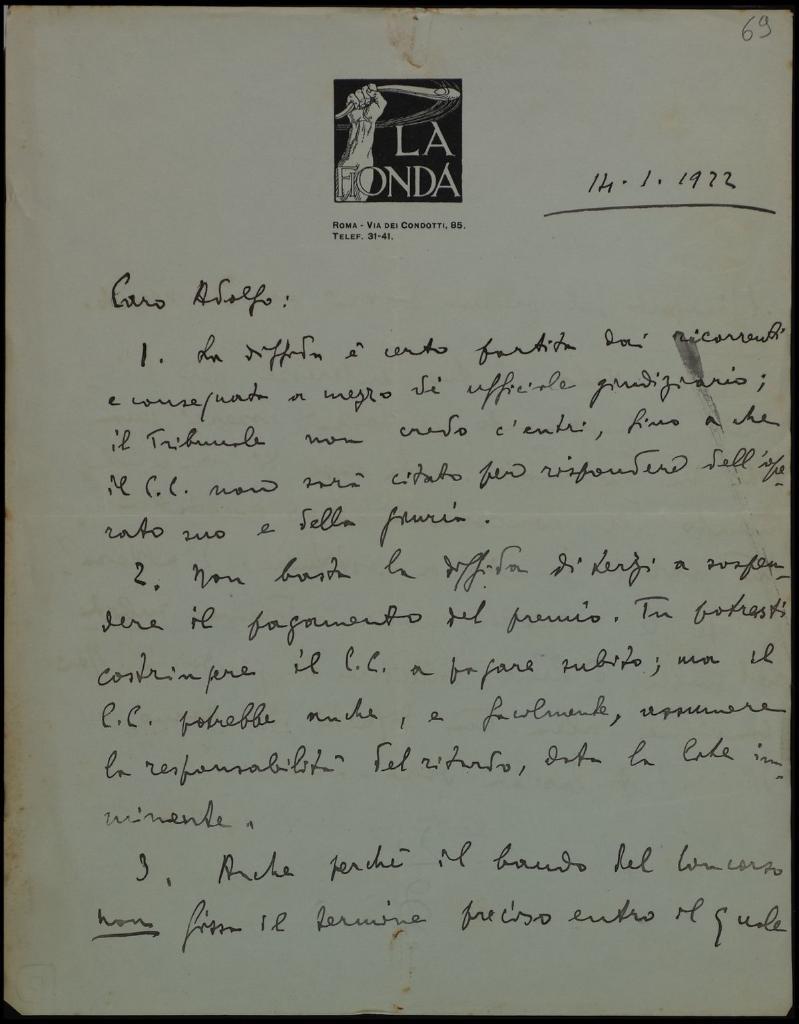 69
LA
FIONDA
ROMA - VIA DEI CONDOTTI, 85.
TELEF. 31-41.
14.1.1922
Caro Adolfo:
1. La diffida è certo partita dai ricorrenti
e consegnata a mezzo di ufficiale giudiziario;
il Tribunale non credo c'entri, fino a che
il C.C. non sarà citato per rispondere dell'ope-
rato suo e della giuria.
2. Non basta la diffida di terzi a sospen-
dere il pagamento del premio. Tu potresti
costringere il C.C. a pagare subito; ma il
C.C. potrebbe anche, e facilmente, assumere
la responsabilità del ritardo, data la lite im-
minente.
3. Anche perché il bando del Concorso
non fissa il termine preciso entro il quale